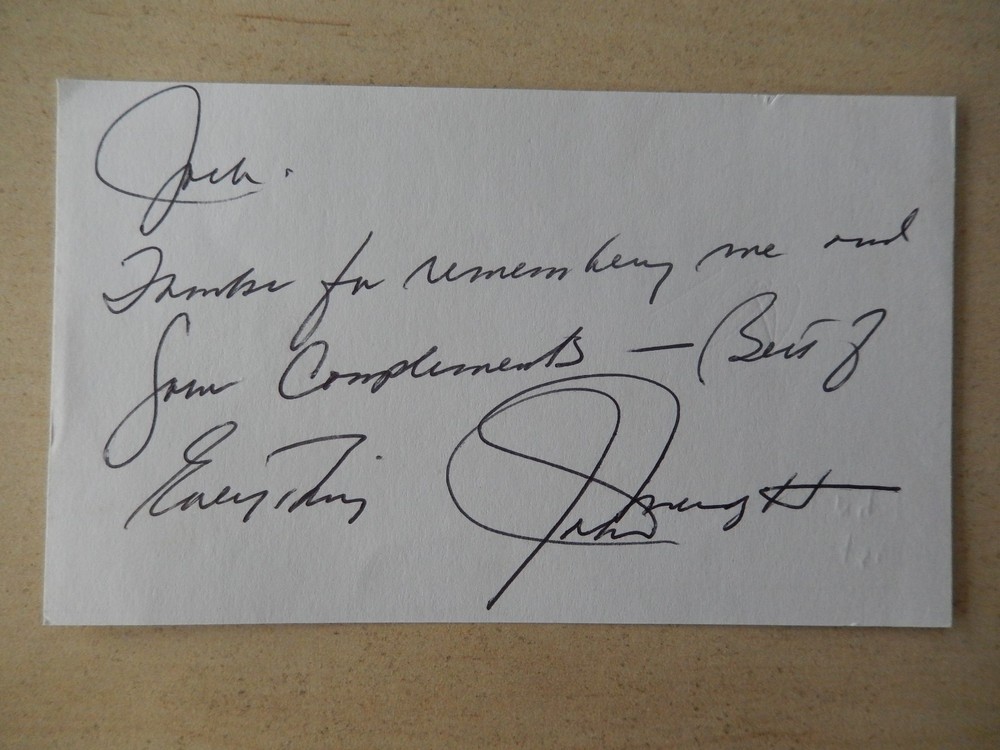 Jack.
Thanks for remembering me and
your Complements — Best of
Everything John